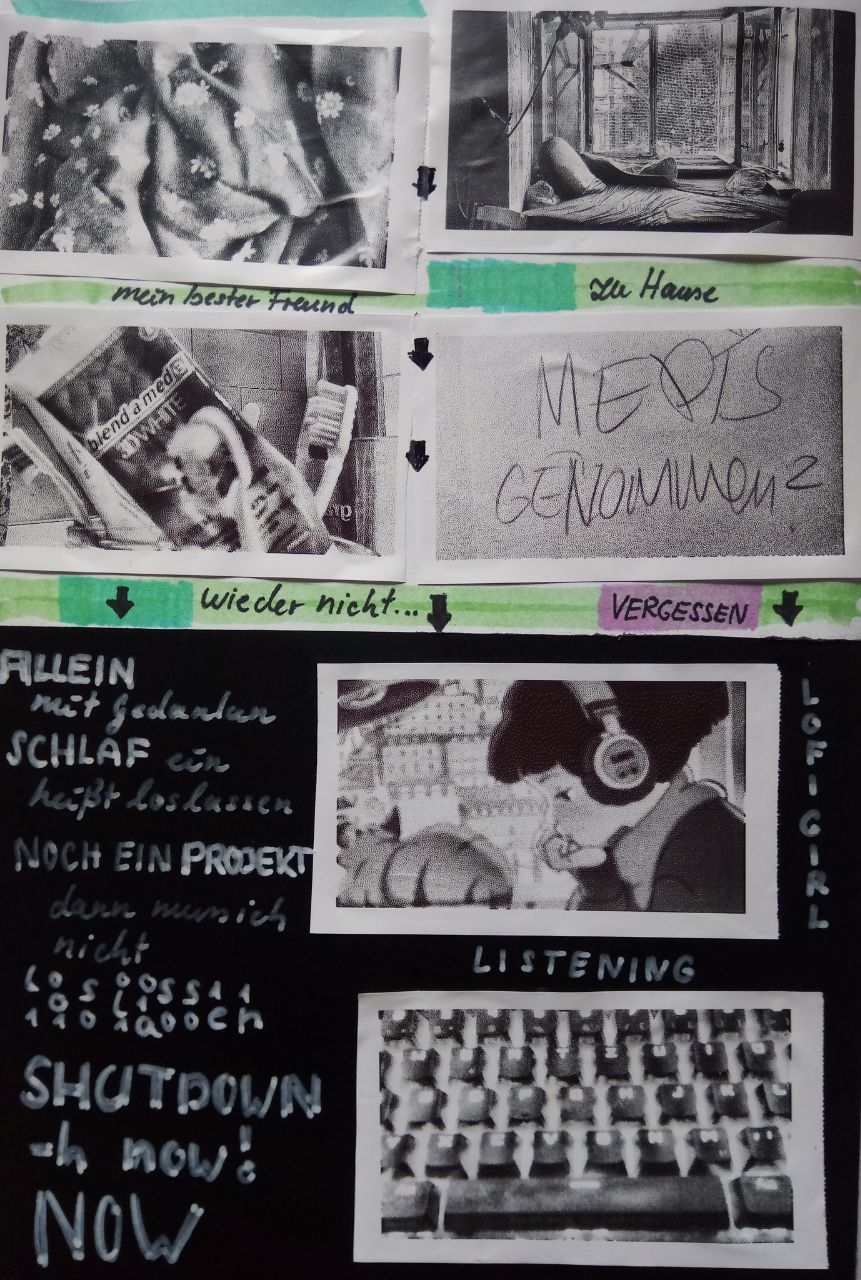 mein bester Freund
zu Hause
blend a med
3D WHITE
MEDIS
GENOMMEN?
wieder nicht...
VERGESSEN
ALLEIN
mit Gedanken
SCHLAF ein
heißt loslassen
NOCH EIN PROJEKT
dann muss ich
nicht
SHUTDOWN
-h now!
NOW
LOFI GIRL
LISTENING